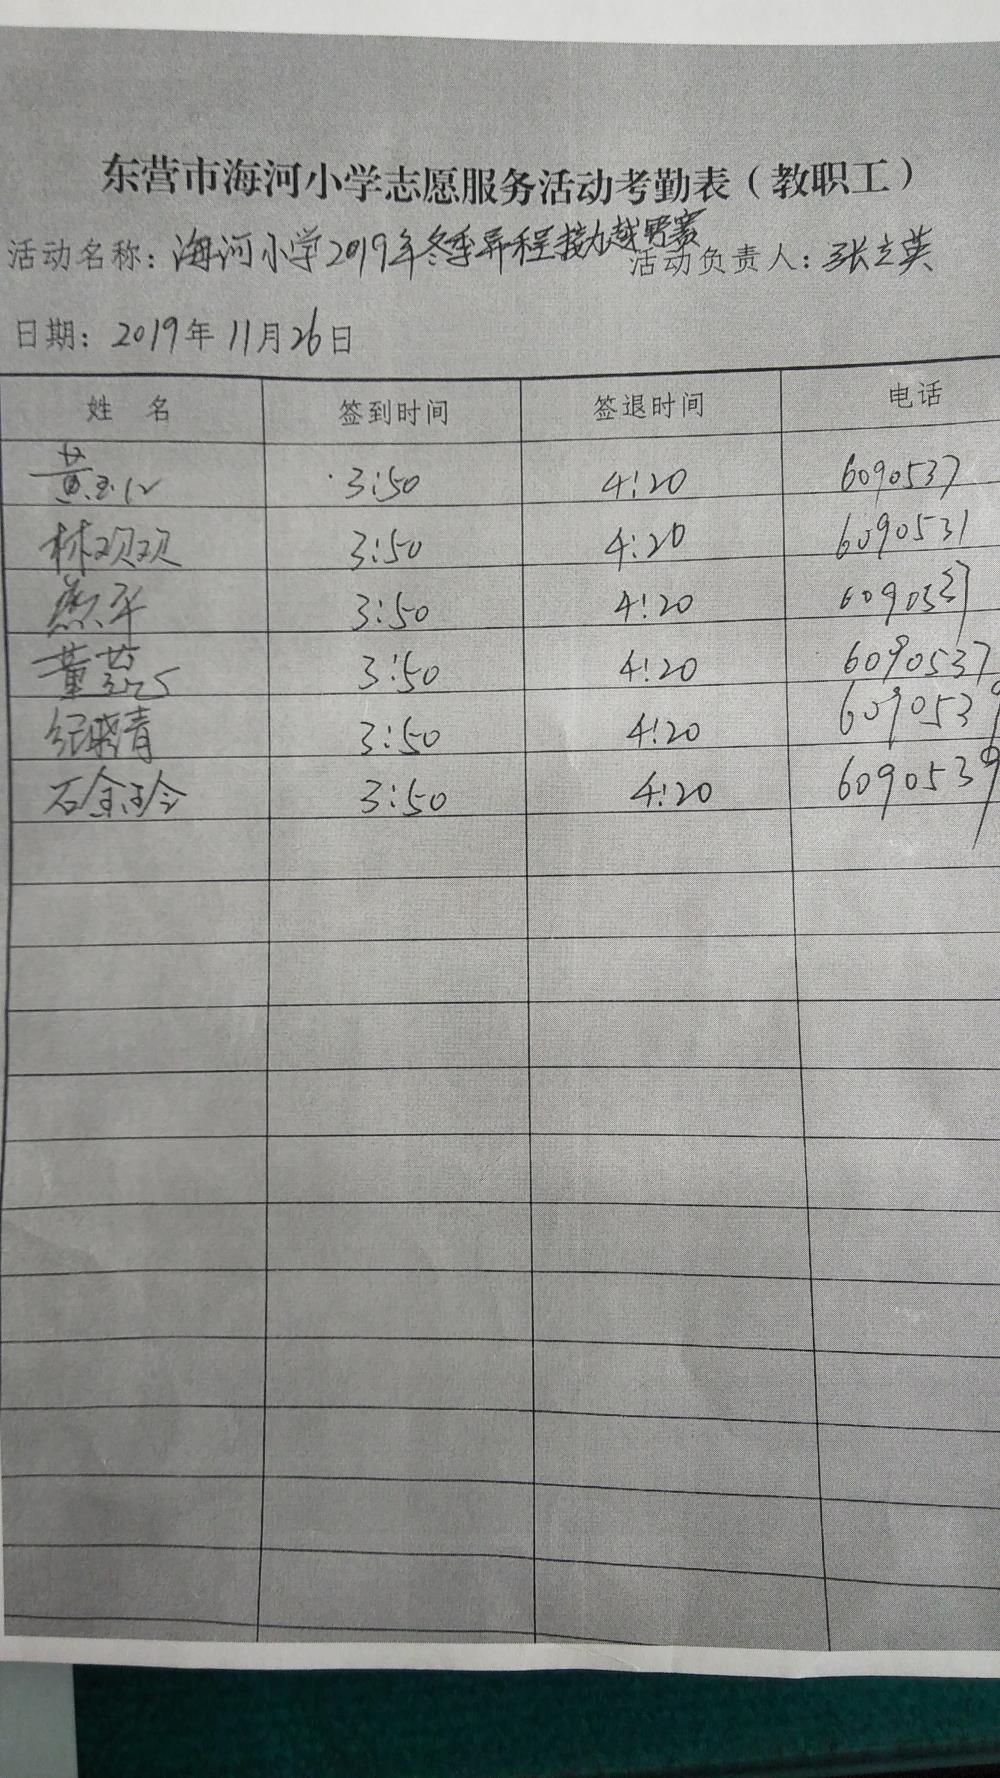 东营市海河小学志愿服务活动考勤表（教职工）
活动名称：海河小学2019年冬季异程接力越野赛 活动负责人：张立英
日期：2019年11月26日
姓 名 签到时间 签退时间 电话
黄 3:50 4:20 6090537
林欢欢 3:50 4:20 6090531
燕平 3:50 4:20 6090537
董 3:50 4:20 6090537
纪晓青 3:50 4:20 6090539
石金玲 3:50 4:20 6090539